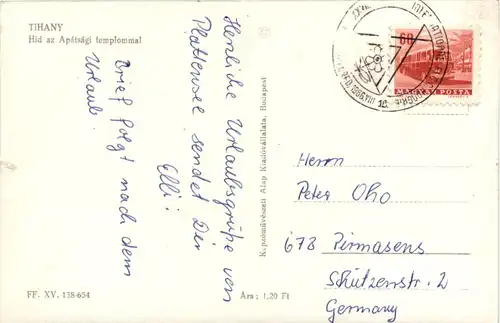 TIHANY
Híd az Apátsági templommal
Herzliche Urlaubsgrüße vom
Plattensee sendet Dir
Elli!
Brief folgt nach dem
Urlaub.
FF. XV. 138-654
Ára: 1,20 Ft
Képzőművészeti Alap Kiadóvállalata, Budapest
60
MAGYAR POSTA
Herrn
Peter Oho
678 Pirmasens
Schützenstr. 2
Germany